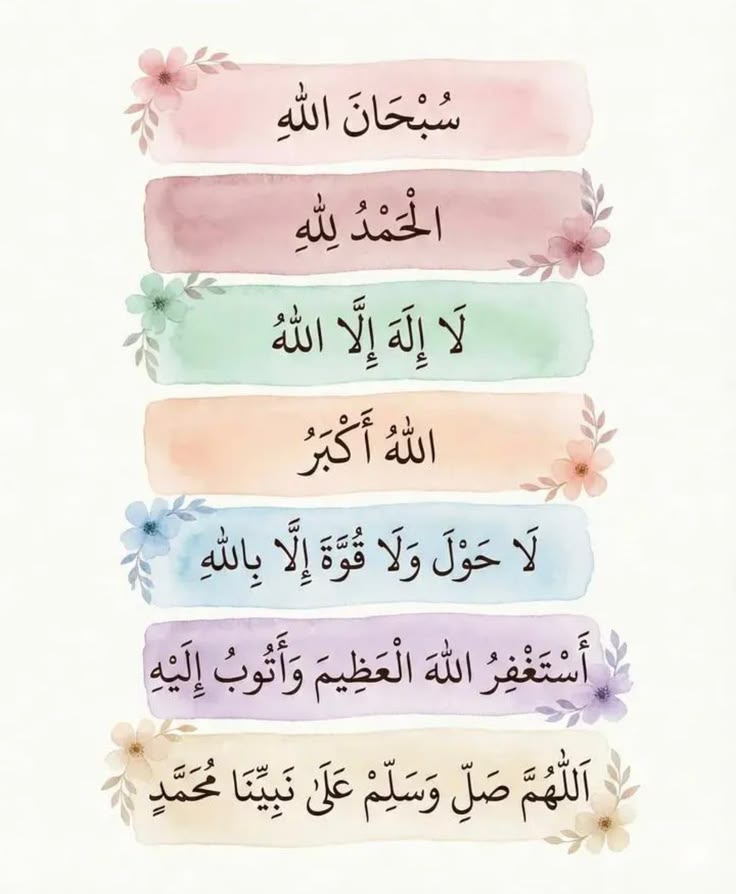 سُبْحَانَ اللّٰهِ
الْحَمْدُ لِلّٰهِ
لَا إِلَهَ إِلَّا اللّٰهُ
اللّٰهُ أَكْبَرُ
لَا حَوْلَ وَلَا قُوَّةَ إِلَّا بِاللّٰهِ
أَسْتَغْفِرُ اللّٰهَ الْعَظِيمَ وَأَتُوبُ إِلَيْهِ
اَللّٰهُمَّ صَلِّ وَسَلِّمْ عَلَىٰ نَبِيِّنَا مُحَمَّدٍ